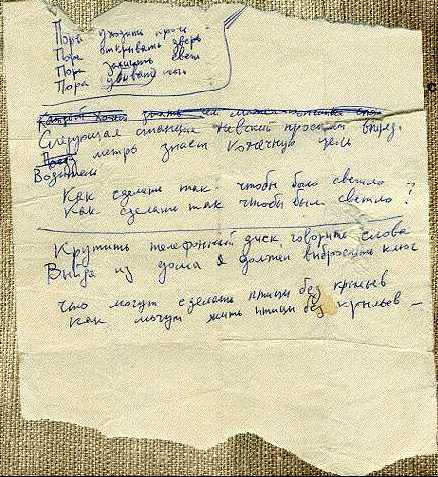 Пора уходить прочь
Пора открывать дверь
Пора зажигать свет
Пора убывать
Следующая станция Невский проспект вперёд.
метро знает конечную цель
Водитель
Как сделать так чтобы было светло ?
Как сделать так чтобы был светло ?
Крутить телефонный диск говорить слова
Выйдя из дома я должен выбросить ключ
Что могут сделать птицы без крыльев
Как могут жить птицы без крыльев —